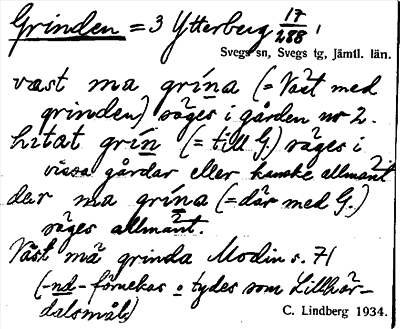 Grinden = 3 Ytterberg 17/288
Svegs sn, Svegs tg, Jämtl. län.
väst ma grína (= Väst med
grinden) säges i gården nr 2.
hitat grín (= till G.) säges i
vissa gårdar eller kanske allmänt
där ma grína (= där med G.)
säges allmänt.
Väst mä grinda Modin s. 71
(-nd- förnekas o tydes som Lillhär-
dalsmål)
C. Lindberg 1934.